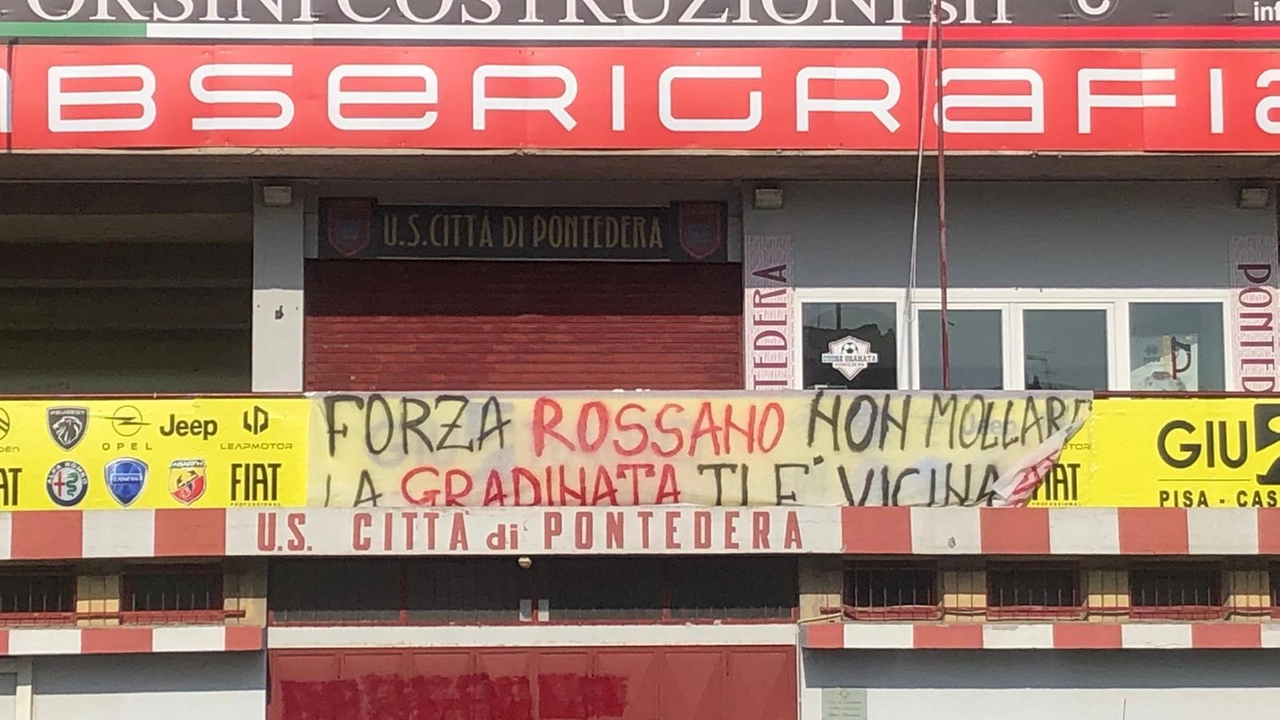 ORSINICOSTRUZIONIsrl
BSERIGRAFIA
U.S.CITTÀ DI PONTEDERA
PONTEDERA
CUORE GRANATA
PEUGEOT
OPEL
Jeep
LEAPMOTOR
ALFA ROMEO
ABARTH
FIAT
PROFESSIONAL
FORZA ROSSANO NON MOLLARE
LA GRADINATA TI E' VICINA
FIAT
PROFESSIONAL
GIU
PISA - CAS
U.S. CITTÀ di PONTEDERA